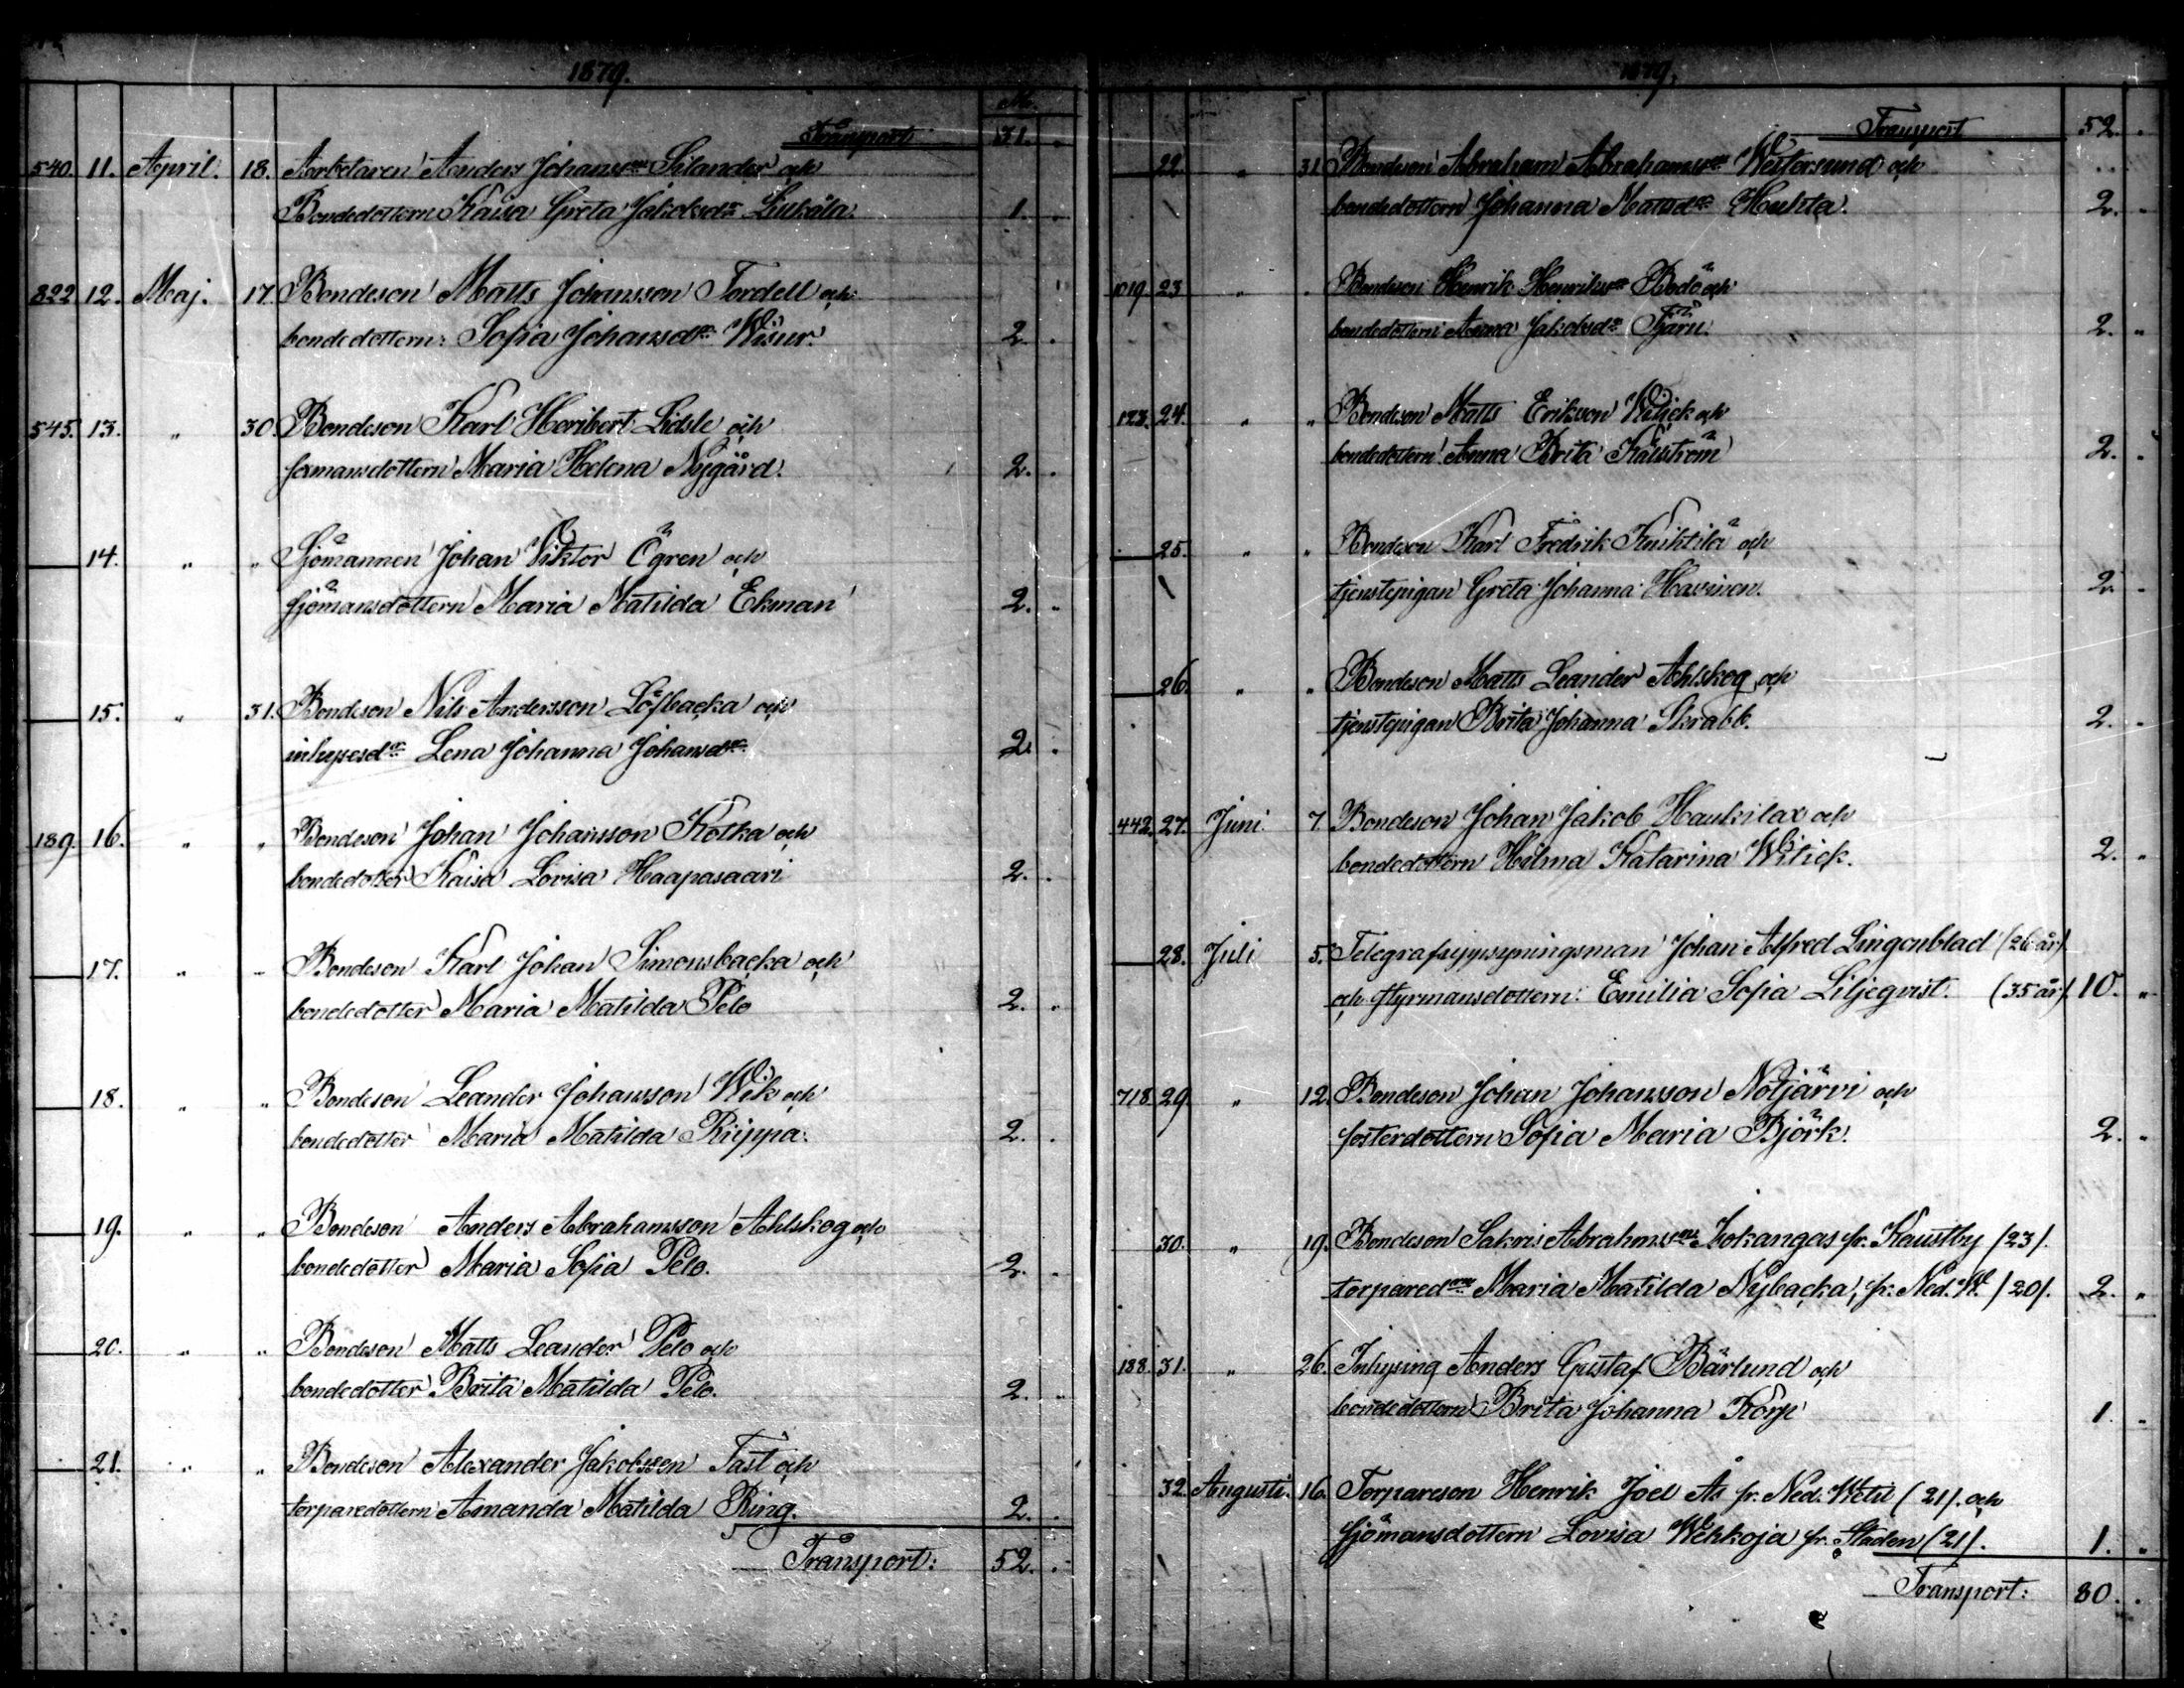 1879.
M.
Transport 31.
540. 11. April. 18. Arbetaren Anders Johansson Silander och
Bondedottern Kaisa Greta Jakobsdr Liukala. 1.
822 12. Maj. 17. Bondeson Matts Johansson Tordell och
bondedottern: Sofia Johansdr Wisur. 2.
545. 13. " 30. Bondeson Karl Heribert Lidsle och
formansdottern Maria Helena Nygård. 2.
14. " " Sjömannen Johan Viktor Ögren och
sjömansdottern Maria Matilda Ekman 2.
15. " 31. Bondeson Nils Andersson Löfbacka och
inhysesdr Lena Johanna Johansdr 2.
189. 16. " " Bondeson Johan Johansson Kotka och
bondedotter Kaisa Lovisa Haapasaari 2.
17. " " Bondeson Karl Johan Simonsbacka och
bondedotter Maria Matilda Pelo 2.
18. " " Bondeson Leander Johansson Wik och
bondedotter Maria Matilda Riippa. 2.
19. " " Bondeson Anders Abrahamsson Ahlskog och
bondedotter Maria Sofia Pelo. 2.
20. " " Bondeson Matts Leander Pelo och
bondedotter Brita Matilda Pelo. 2.
21. " " Bondeson Alexander Jakobsson Tast och
torparedottern Amanda Matilda Ring. 2.
Transport: 52.
1879.
Transport 52.
22. " 31 Bondeson Abraham Abrahamsson Westersund och
bondedottern Johanna Mattsdr Huhta. 2.
1019 23 " " Bondeson Henrik Henriksson Bodö och
bondedottern Anna Jakobsdr Tjäru. 2.
123. 24. " " Bondeson Matts Eriksson Witick och
bondedottern Anna Brita Källström 2.
25. " " Bondeson Karl Fredrik Knihtilä och
tjenstepigan Greta Johanna Havinen. 2.
26. " " Bondeson Matts Leander Ahlskog och
tjenstepigan Brita Johanna Skrabb. 2.
442. 27. Juni. 7. Bondeson Johan Jakob Haukilax och
bondedottern Hilma Katarina Witick. 2.
28. Juli 5. Telegrafuppsyningsman Johan Alfred Lingonblad (26 år)
och styrmansdottern: Emilia Sofia Liljeqvist. (35 år). 10.
718. 29 " 12. Bondeson Johan Johansson Nötjärvi och
fosterdottern Sofia Maria Björk. 2.
30. " 19. Bondeson Sakris Abrahmsson Isokangas fr. Kaustby (23).
torparedrn Maria Matilda Nybacka, fr. Ned. W. (20). 2.
188. 31. " 26. Inhysing Anders Gustaf Bärlund och
bondedottern Brita Johanna Korp 1.
32. Augusti. 16. Torpareson Henrik Joel Ås fr. Ned. Wetil (21). och
sjömansdottern Lovisa Wehkoja fr. Staden (21). 1.
Transport: 80.